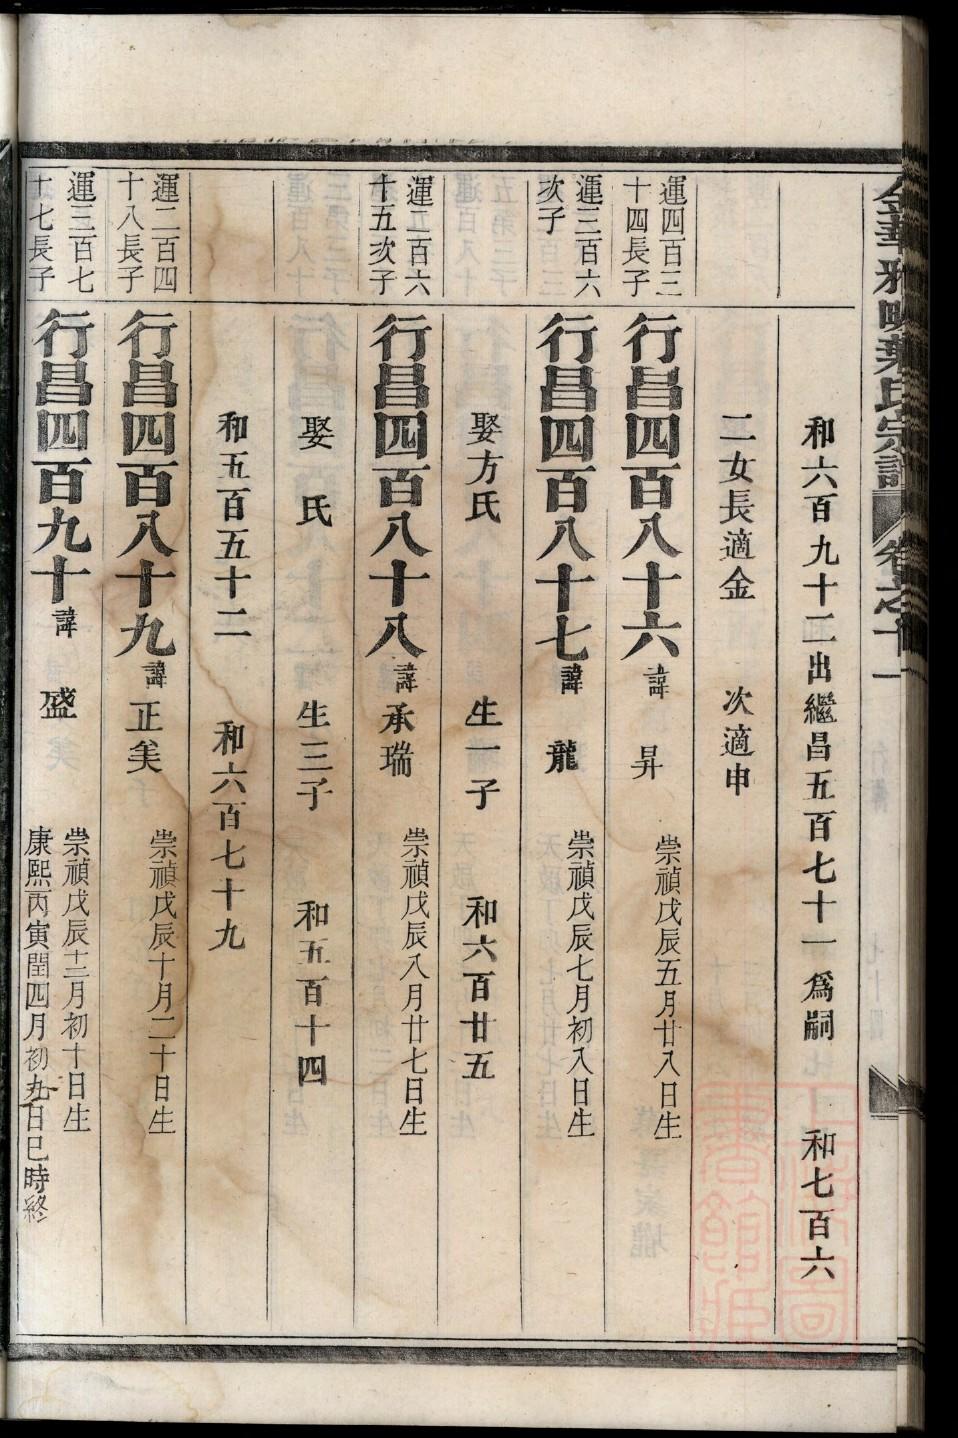 金華雅畈葉氏宗譜 卷之十一
和六百九十二出繼昌五百七十一爲嗣 和七百六
二女長適金 次適申
運四百三十四長子
行昌四百八十六諱 昇 崇禎戊辰五月廿八日生
運三百六次子
行昌四百八十七諱 龍 崇禎戊辰七月初八日生
娶方氏 生一子 和六百廿五
運一百六十五次子
行昌四百八十八諱承瑞 崇禎戊辰八月廿七日生
娶 氏 生三子 和五百十四
和五百五十二 和六百七十九
運二百四十八長子
行昌四百八十九諱正美 崇禎戊辰十月二十日生
運三百七十七長子
行昌四百九十諱 盛 崇禎戊辰十二月初十日生
康熙丙寅閏四月初九日巳時終